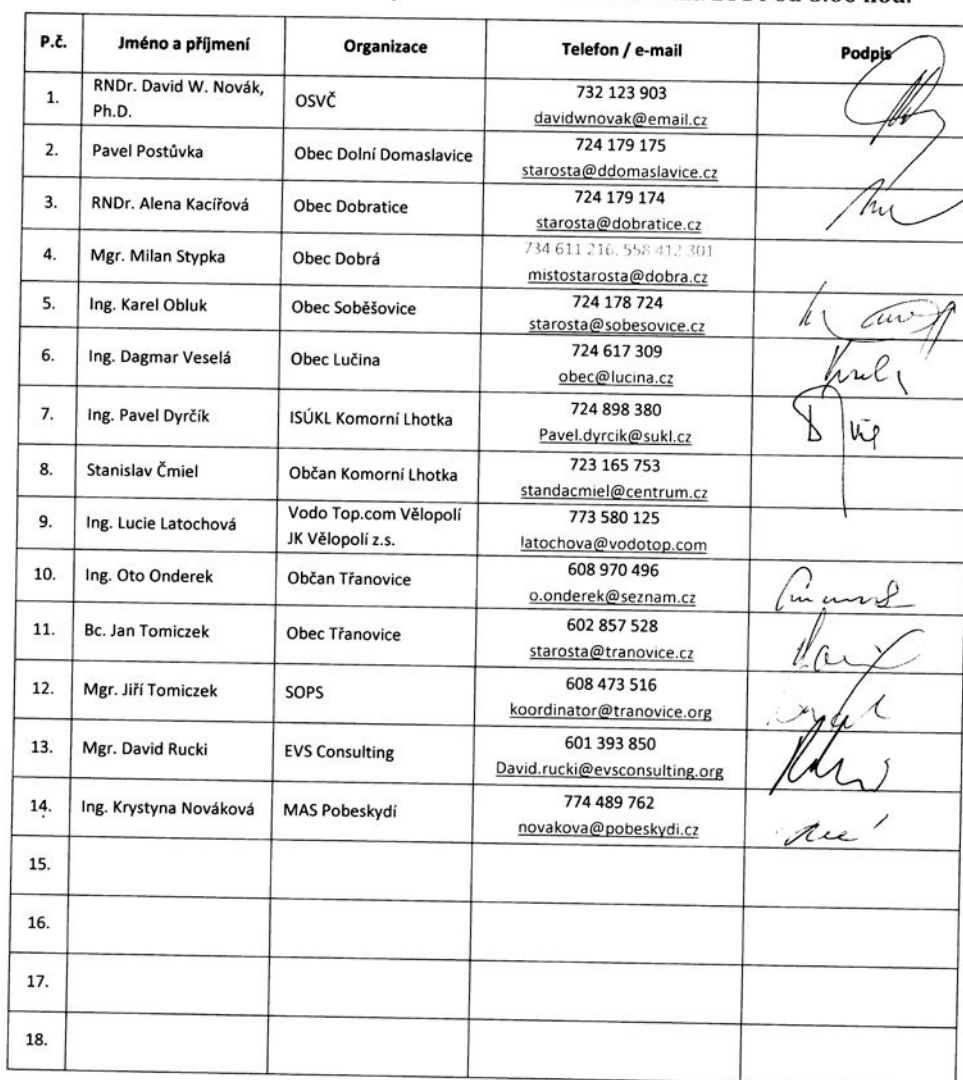 2014 od 8.00 hod.
P.č. Jméno a příjmení Organizace Telefon / e-mail Podpis
1. RNDr. David W. Novák, Ph.D. OSVČ 732 123 903
davidwnovak@email.cz
2. Pavel Postůvka Obec Dolní Domaslavice 724 179 175
starosta@ddomaslavice.cz
3. RNDr. Alena Kacířová Obec Dobratice 724 179 174
starosta@dobratice.cz
4. Mgr. Milan Stypka Obec Dobrá 734 611 216, 558 412 301
mistostarosta@dobra.cz
5. Ing. Karel Obluk Obec Soběšovice 724 178 724
starosta@sobesovice.cz
6. Ing. Dagmar Veselá Obec Lučina 724 617 309
obec@lucina.cz
7. Ing. Pavel Dyrčík ISÚKL Komorní Lhotka 724 898 380
Pavel.dyrcik@sukl.cz
8. Stanislav Čmiel Občan Komorní Lhotka 723 165 753
standacmiel@centrum.cz
9. Ing. Lucie Latochová Vodo Top.com Vělopolí JK Vělopolí z.s. 773 580 125
latochova@vodotop.com
10. Ing. Oto Onderek Občan Třanovice 608 970 496
o.onderek@seznam.cz
11. Bc. Jan Tomiczek Obec Třanovice 602 857 528
starosta@tranovice.cz
12. Mgr. Jiří Tomiczek SOPS 608 473 516
koordinator@tranovice.org
13. Mgr. David Rucki EVS Consulting 601 393 850
David.rucki@evsconsulting.org
14. Ing. Krystyna Nováková MAS Pobeskydí 774 489 762
novakova@pobeskydi.cz
15.
16.
17.
18.